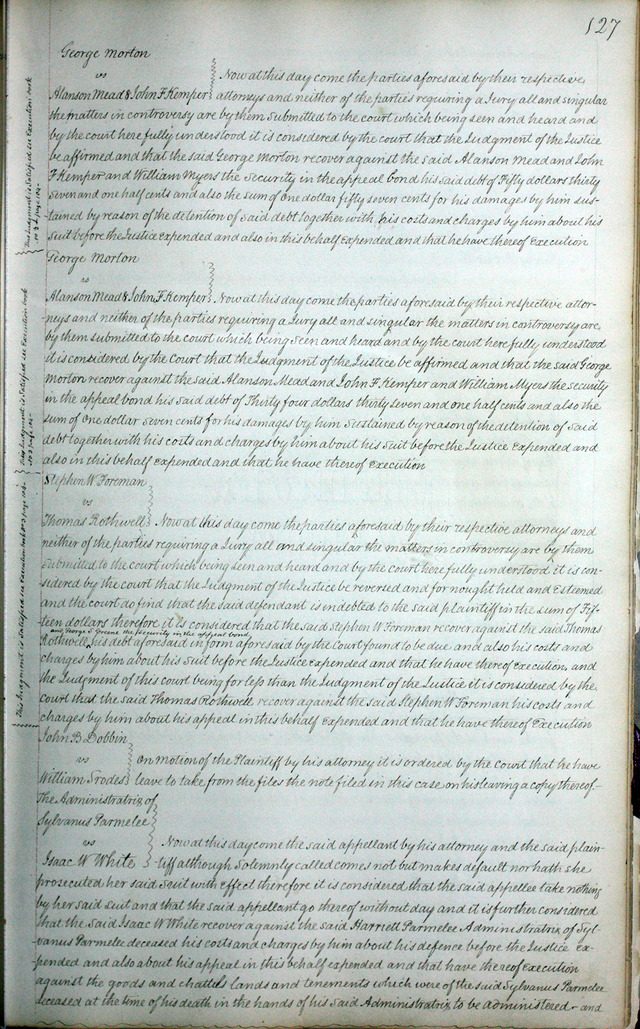 127
George Morton
vs
Alanson Mead & John F Kemper
Now at this day come the parties aforesaid by their respective
attorneys and neither of the parties requiring a Jury all and singular
the matters in controversy are by them submitted to the court which being seen and heard and
by the court here fully understood it is considered by the court that the Judgment of the Justice
be affirmed and that the said George Morton recover against the said Alanson Mead and John
F Kemper and William Myers the Security in the appeal bond his said debt of Fifty dollars thirty
seven and one half cents and also the sum of one dollar fifty seven cents for his damages by him sus-
tained by reason of the detention of said debt together with his costs and charges by him about his
suit before the Justice expended and also in this behalf expended and that he have thereof Execution
This Judgment is Satisfied see Execution book
George Morton
vs
Alanson Mead & John F Kemper
Now at this day come the parties aforesaid by their respective attor-
neys and neither of the parties requiring a Jury all and singular the matters in controversy are
by them submitted to the court which being seen and heard and by the court here fully understood
it is considered by the Court that the Judgment of the Justice be affirmed and that the said George
Morton recover against the said Alanson Mead and John F Kemper and William Myers the security
in the appeal bond his said debt of Thirty four dollars thirty seven and one half cents and also the
sum of one dollar seven cents for his damages by him sustained by reason of the detention of said
debt together with his costs and charges by him about his suit before the Justice Expended and
also in this behalf expended and that he have thereof Execution
This Judgment is Satisfied see Execution book
Stephen W Foreman
vs
Thomas Rothwell
Now at this day come the parties aforesaid by their respective attorneys and
neither of the parties requiring a Jury all and singular the matters in controversy are by them
submitted to the court which being seen and heard and by the court here fully understood it is con-
sidered by the court that the Judgment of the Justice be reversed and for nought held and Esteemed
and the court do find that the said defendant is indebted to the said plaintiff in the sum of Fif-
teen dollars therefore it is considered that the said Stephen W Foreman recover against the said Thomas
and George S the Security in the appeal bond
Rothwell his debt aforesaid in form aforesaid by the Court found to be due and also his costs and
charges by him about his suit before the Justice expended and that he have thereof execution, and
the Judgment of this court being for less than the Judgment of the Justice it is considered by the
court that the said Thomas Rothwell recover against the said Stephen W Foreman his costs and
charges by him about his appeal in this behalf expended and that he have thereof Execution
This Judgment is Satisfied see Execution book
John B Dobbin
vs
William Trodes
On motion of the Plaintiff by his attorney it is ordered by the court that he have
leave to take from the files the note filed in this case on his leaving a copy thereof.
The Administratrix of
Sylvanus Parmelee
vs
Isaac W White
Now at this day come the said appellant by his attorney and the said plain-
tiff although Solemnly called comes not but makes default nor hath she
prosecuted her said suit with effect therefore it is considered that the said appellee take nothing
by her said suit and that the said appellant go thereof without day and it is further considered
that the said Isaac W White recover against the said Harriett Parmelee Administratrix of Syl-
vanus Parmelee deceased his costs and charges by him about his defence before the Justice ex-
pended and also about his appeal in this behalf expended and that have thereof execution
against the goods and chattels lands and tenements which were of the said Sylvanus Parmelee
deceased at the time of his death in the hands of his said Administratrix to be administered and